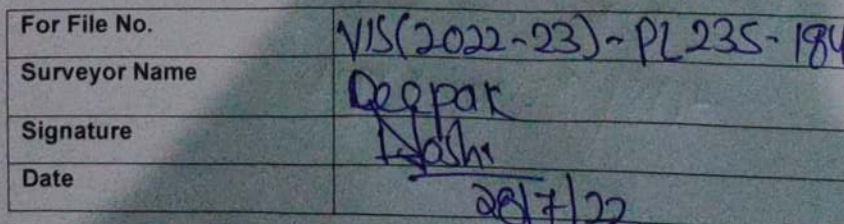 For File No. VIS(2022-23)-PL235-184
Surveyor Name Deepak
Signature Joshi
Date 28/7/22